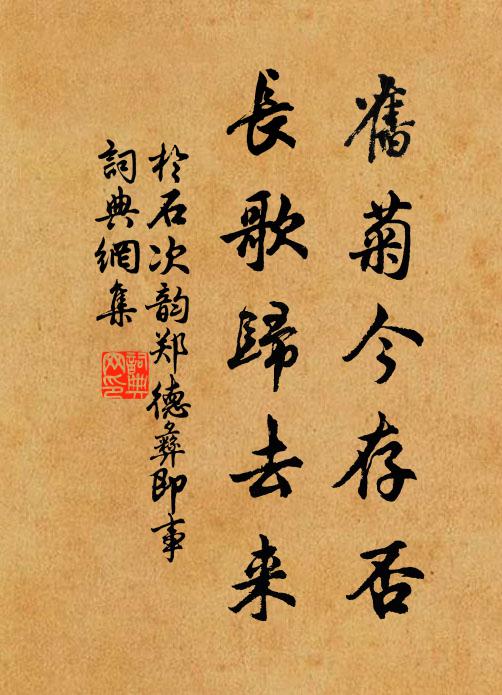 舊菊今存否
長歌歸去来
於石次韵郑德彝即事
詞典網集
詞典网印